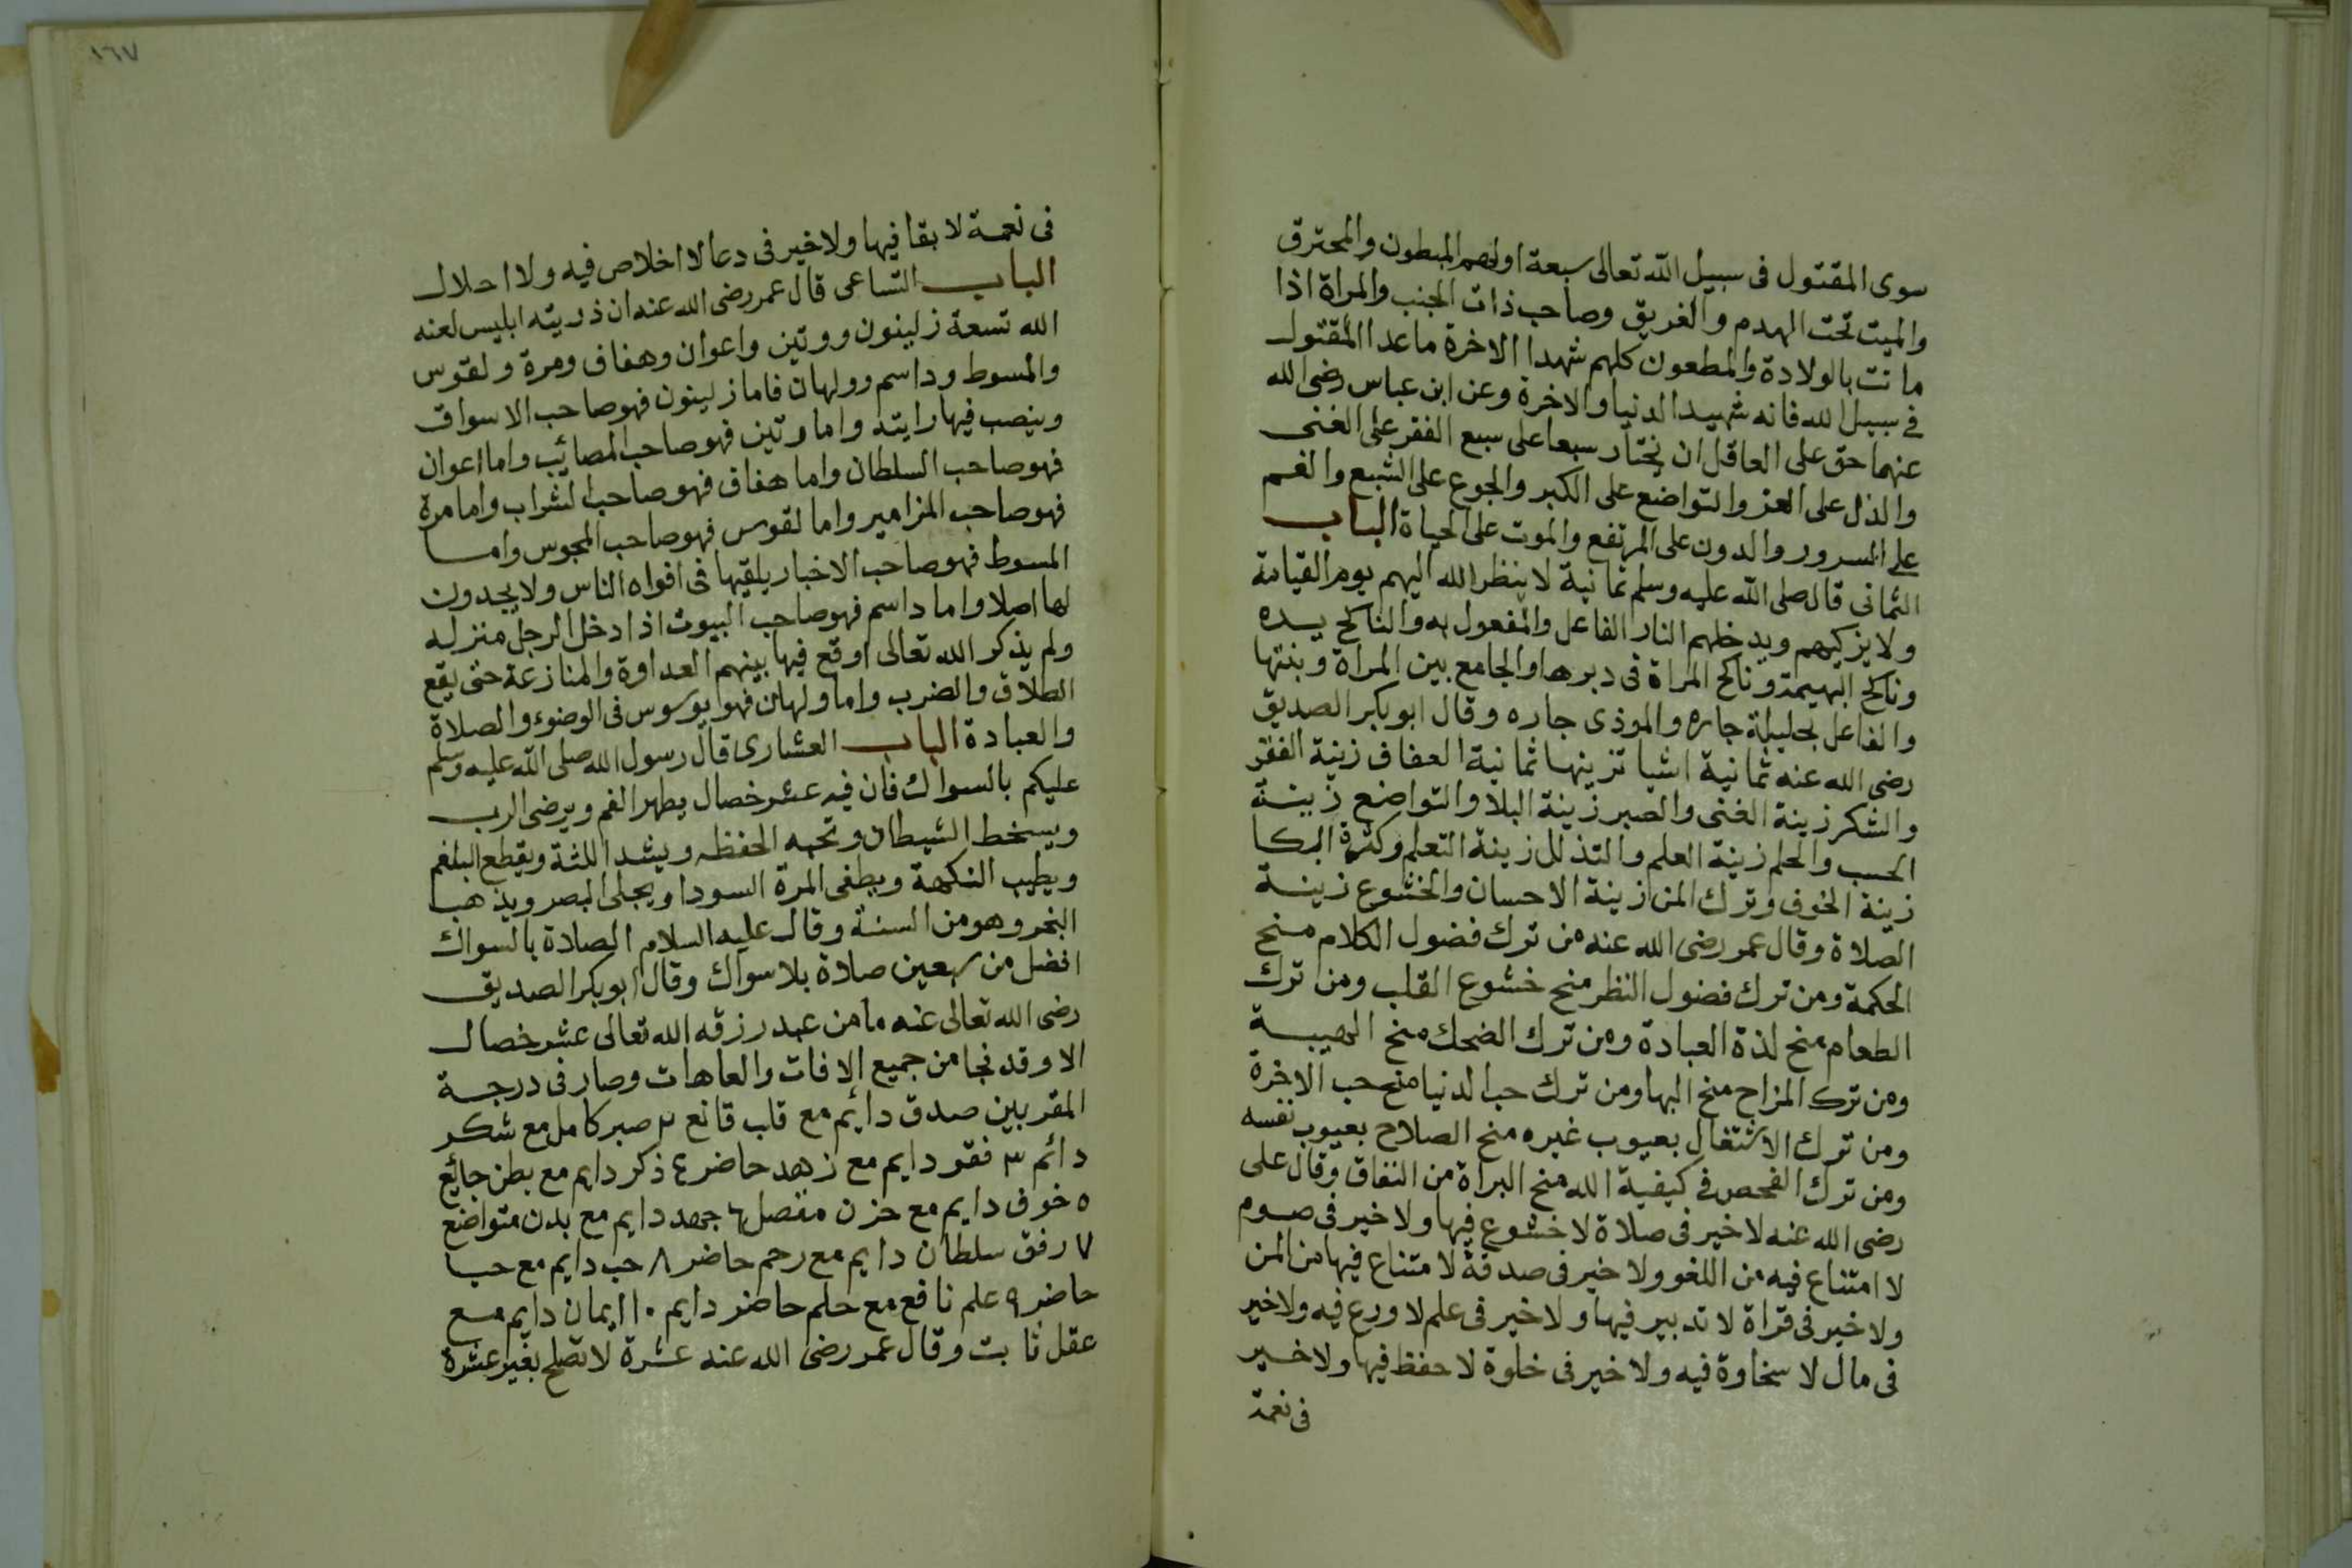 سوى المقتول فى سبيل الله تعالى سبعة اولهم المبطون والمحترق
والميت تحت الهدم والغريق وصاحب ذات الجنب والمراة اذا
ماتت بالولادة والمطعون كلهم شهدا الاخرة ماعدا المقتول
فى سبيل الله فانه شهيد الدنيا والاخرة وعن ابن عباس رضى الله
عنهما حق على العاقل ان يختار سبعا على سبع الفقر على الغنى
والذل على العز والتواضع على الكبر والجوع على الشبع والغم
على السرور والدون على المرتفع والموت على الحياة الباب
الثمانى قال صلى الله عليه وسلم ثمانية لا ينظر الله اليهم يوم القيامة
ولا يزكيهم ويدخلهم النار الفاعل والمفعول به والناكح يده
وناكح البهيمة وناكح المراة فى دبرها والجامع بين المراة وبنتها
والفاعل بحليلة جاره والموذى جاره وقال ابو بكر الصديق
رضى الله عنه ثمانية اشيا تزينها ثمانية العفاف زينة الفقر
والشكر زينة الغنى والصبر زينة البلا والتواضع زينة
الحسب والحلم زينة العلم والتذلل زينة التعلم وكثرة البكا
زينة الخوف وترك المن زينة الاحسان والخشوع زينة
الصلاة وقال عمر رضى الله عنه من ترك فضول الكلام منح
الحكمة ومن ترك فضول النظر منح خشوع القلب ومن ترك
الطعام منح لذة العبادة ومن ترك الضحك منح الهيبة
ومن ترك المزاح منح البها ومن ترك حب الدنيا منح حب الاخرة
ومن ترك الاشتغال بعيوب غيره منح الصلاح بعيوب نفسه
ومن ترك الفحص فى كيفية الله منح البراة من النفاق وقال على
رضى الله عنه لا خير فى صلاة لا خشوع فيها ولا خير فى صوم
لا امتناع فيه من اللغو ولا خير فى صدقة لا متناع فيها من المن
ولا خير فى قراة لا تدبير فيها ولا خير فى علم لا ورع فيه ولا خير
فى مال لا سخاوة فيه ولا خير فى خلوة لا حفظ فيها ولا خير
فى نعمة
١٦٧
فى نعمة لا بقا فيها ولا خير فى دعا لا اخلاص فيه ولا احلال
الباب التساعى قال عمر رضى الله عنه ان ذريته ابليس لعنه
الله تسعة زلينون ووتين واعوان وهفاف ومرة ولقوس
والمسوط وداسم وولهان فاما زلينون فهو صاحب الاسواق
وينصب فيها رايته واما وتين فهو صاحب المصائب واما اعوان
فهو صاحب السلطان واما هفاف فهو صاحب الشراب واما مرة
فهو صاحب المزامير واما لقوس فهو صاحب المجوس واما
المسوط فهو صاحب الاخبار يلقيها فى افواه الناس ولا يجدون
لها اصلا واما داسم فهو صاحب البيوت اذا دخل الرجل منزله
ولم يذكر الله تعالى اوقع فيها بينهم العداوة والمنازعة حتى يقع
الطلاق والضرب واما ولهان فهو يوسوس فى الوضوء والصلاة
والعبادة الباب العشارى قال رسول الله صلى الله عليه وسلم
عليكم بالسواك فان فيه عشر خصال يطهر الفم ويرضى الرب
ويسخط الشيطان وتحبه الحفظه ويشد اللثة ويقطع البلغم
ويطيب النكهة ويطفى المرة السودا ويجلى البصر ويذهب
البخر وهو من السنة وقال عليه السلام الصلاة بالسواك
افضل من سبعين صلاة بلا سواك وقال ابو بكر الصديق
رضى الله تعالى عنه ما من عبد رزقه الله تعالى عشر خصال
الا وقد نجا من جميع الافات والعاهات وصار فى درجة
المقربين صدق دايم مع قلب قانع ٢ صبر كامل مع شكر
دائم ٣ فقر دايم مع زهد حاضر ٤ ذكر دايم مع بطن جايع
٥ خوف دايم مع حزن متصل ٦ جهد دايم مع بدن متواضع
٧ رفق سلطان دايم مع رحم حاضر ٨ حب دايم مع حيا
حاضر ٩ علم نافع مع حلم حاضر دايم ١٠ ايمان دايم مع
عقل ثابت وقال عمر رضى الله عنه عشرة لا تصلح بغير عشرة